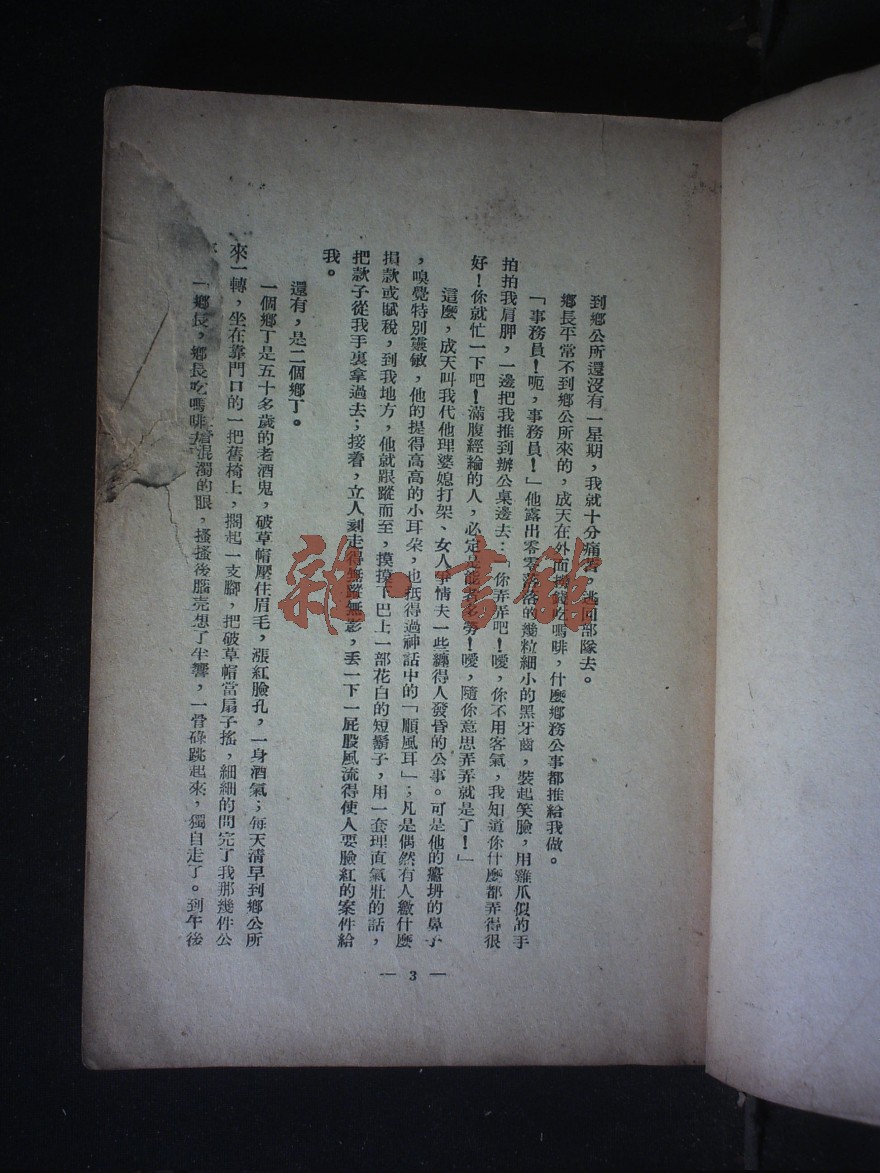 到鄉公所還沒有一星期，我就十分痛苦，逃回部隊去。
鄉長平常不到鄉公所來的，成天在外面撈錢吃嗎啡，什麼鄉務公事都推給我做。
「事務員！呃，事務員！」他露出零零落落的幾粒細小的黑牙齒，裝起笑臉，用雞爪似的手
拍拍我肩胛，一邊把我推到辦公桌邊去：「你弄弄吧！噯，你不用客氣，我知道你什麼都弄得很
好！你就忙一下吧！滿腹經綸的人，必定是能者多勞！噯，隨你意思弄弄就是了！」
這麼，成天叫我代他理婆媳打架、女人爭情夫一些纏得人發昏的公事。可是他的癟坍的鼻子
，嗅覺特別靈敏，他的提得高高的小耳朵，也抵得過神話中的「順風耳」；凡是偶然有人繳什麼
捐款或賦稅，到我地方，他就跟蹤而至，摸摸下巴上一部花白的短鬍子，用一套理直氣壯的話，
把款子從我手裏拿過去；接着，立人刻走得無踪無影，丟一下一屁股風流得使人要臉紅的案件給
我。
還有，是二個鄉丁。
一個鄉丁是五十多歲的老酒鬼，破草帽壓住眉毛，漲紅臉孔，一身酒氣；每天清早到鄉公所
來一轉，坐在靠門口的一把舊椅上，擱起一支腳，把破草帽當扇子搖，細細的問完了我那幾件公
「鄉長，鄉長吃嗎啡去
混濁的眼，搔搔後腦壳想了半響，一骨碌跳起來，獨自走了。到午後
— 3 —
雜·書館